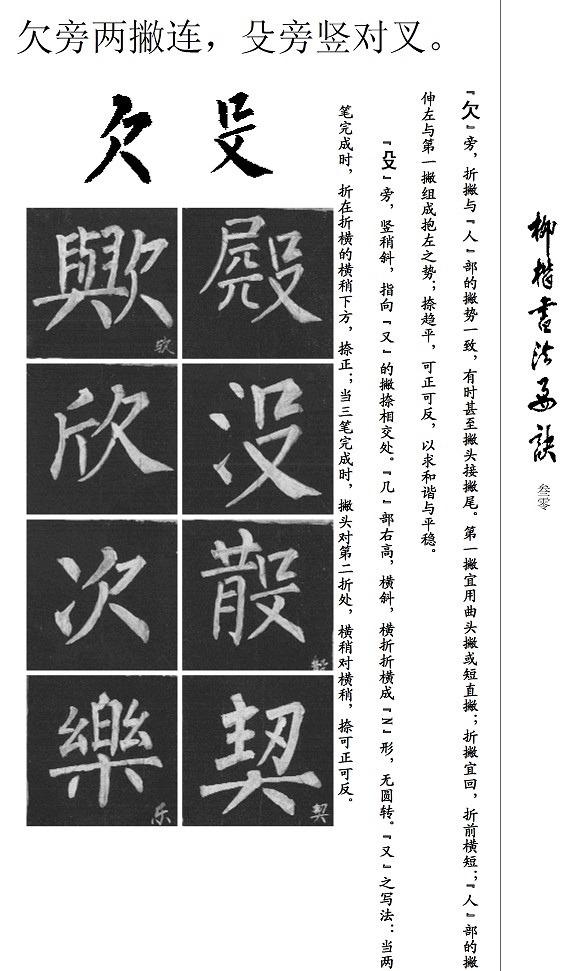 欠旁两撇连，殳旁竖对叉。
柳楷書法要訣
叁零
『欠』旁，折撇与『人』部的撇势一致，有时甚至撇头接撇尾。第一撇宜用曲头撇或短直撇；折撇宜回，折前横短；『人』部的撇
伸左与第一撇组成抱左之势；捺趋平，可正可反，以求和谐与平稳。
『殳』旁，竖稍斜，指向『又』的撇捺相交处。『几』部右高，横斜，横折折横成『Z』形，无圆转。『又』之写法：当两
笔完成时，折在折横的横稍下方，捺正；当三笔完成时，撇头对第二折处，横稍对横稍，捺可正可反。
欠 殳
歟 殿
欤
欣 没
次
樂 契
乐 契